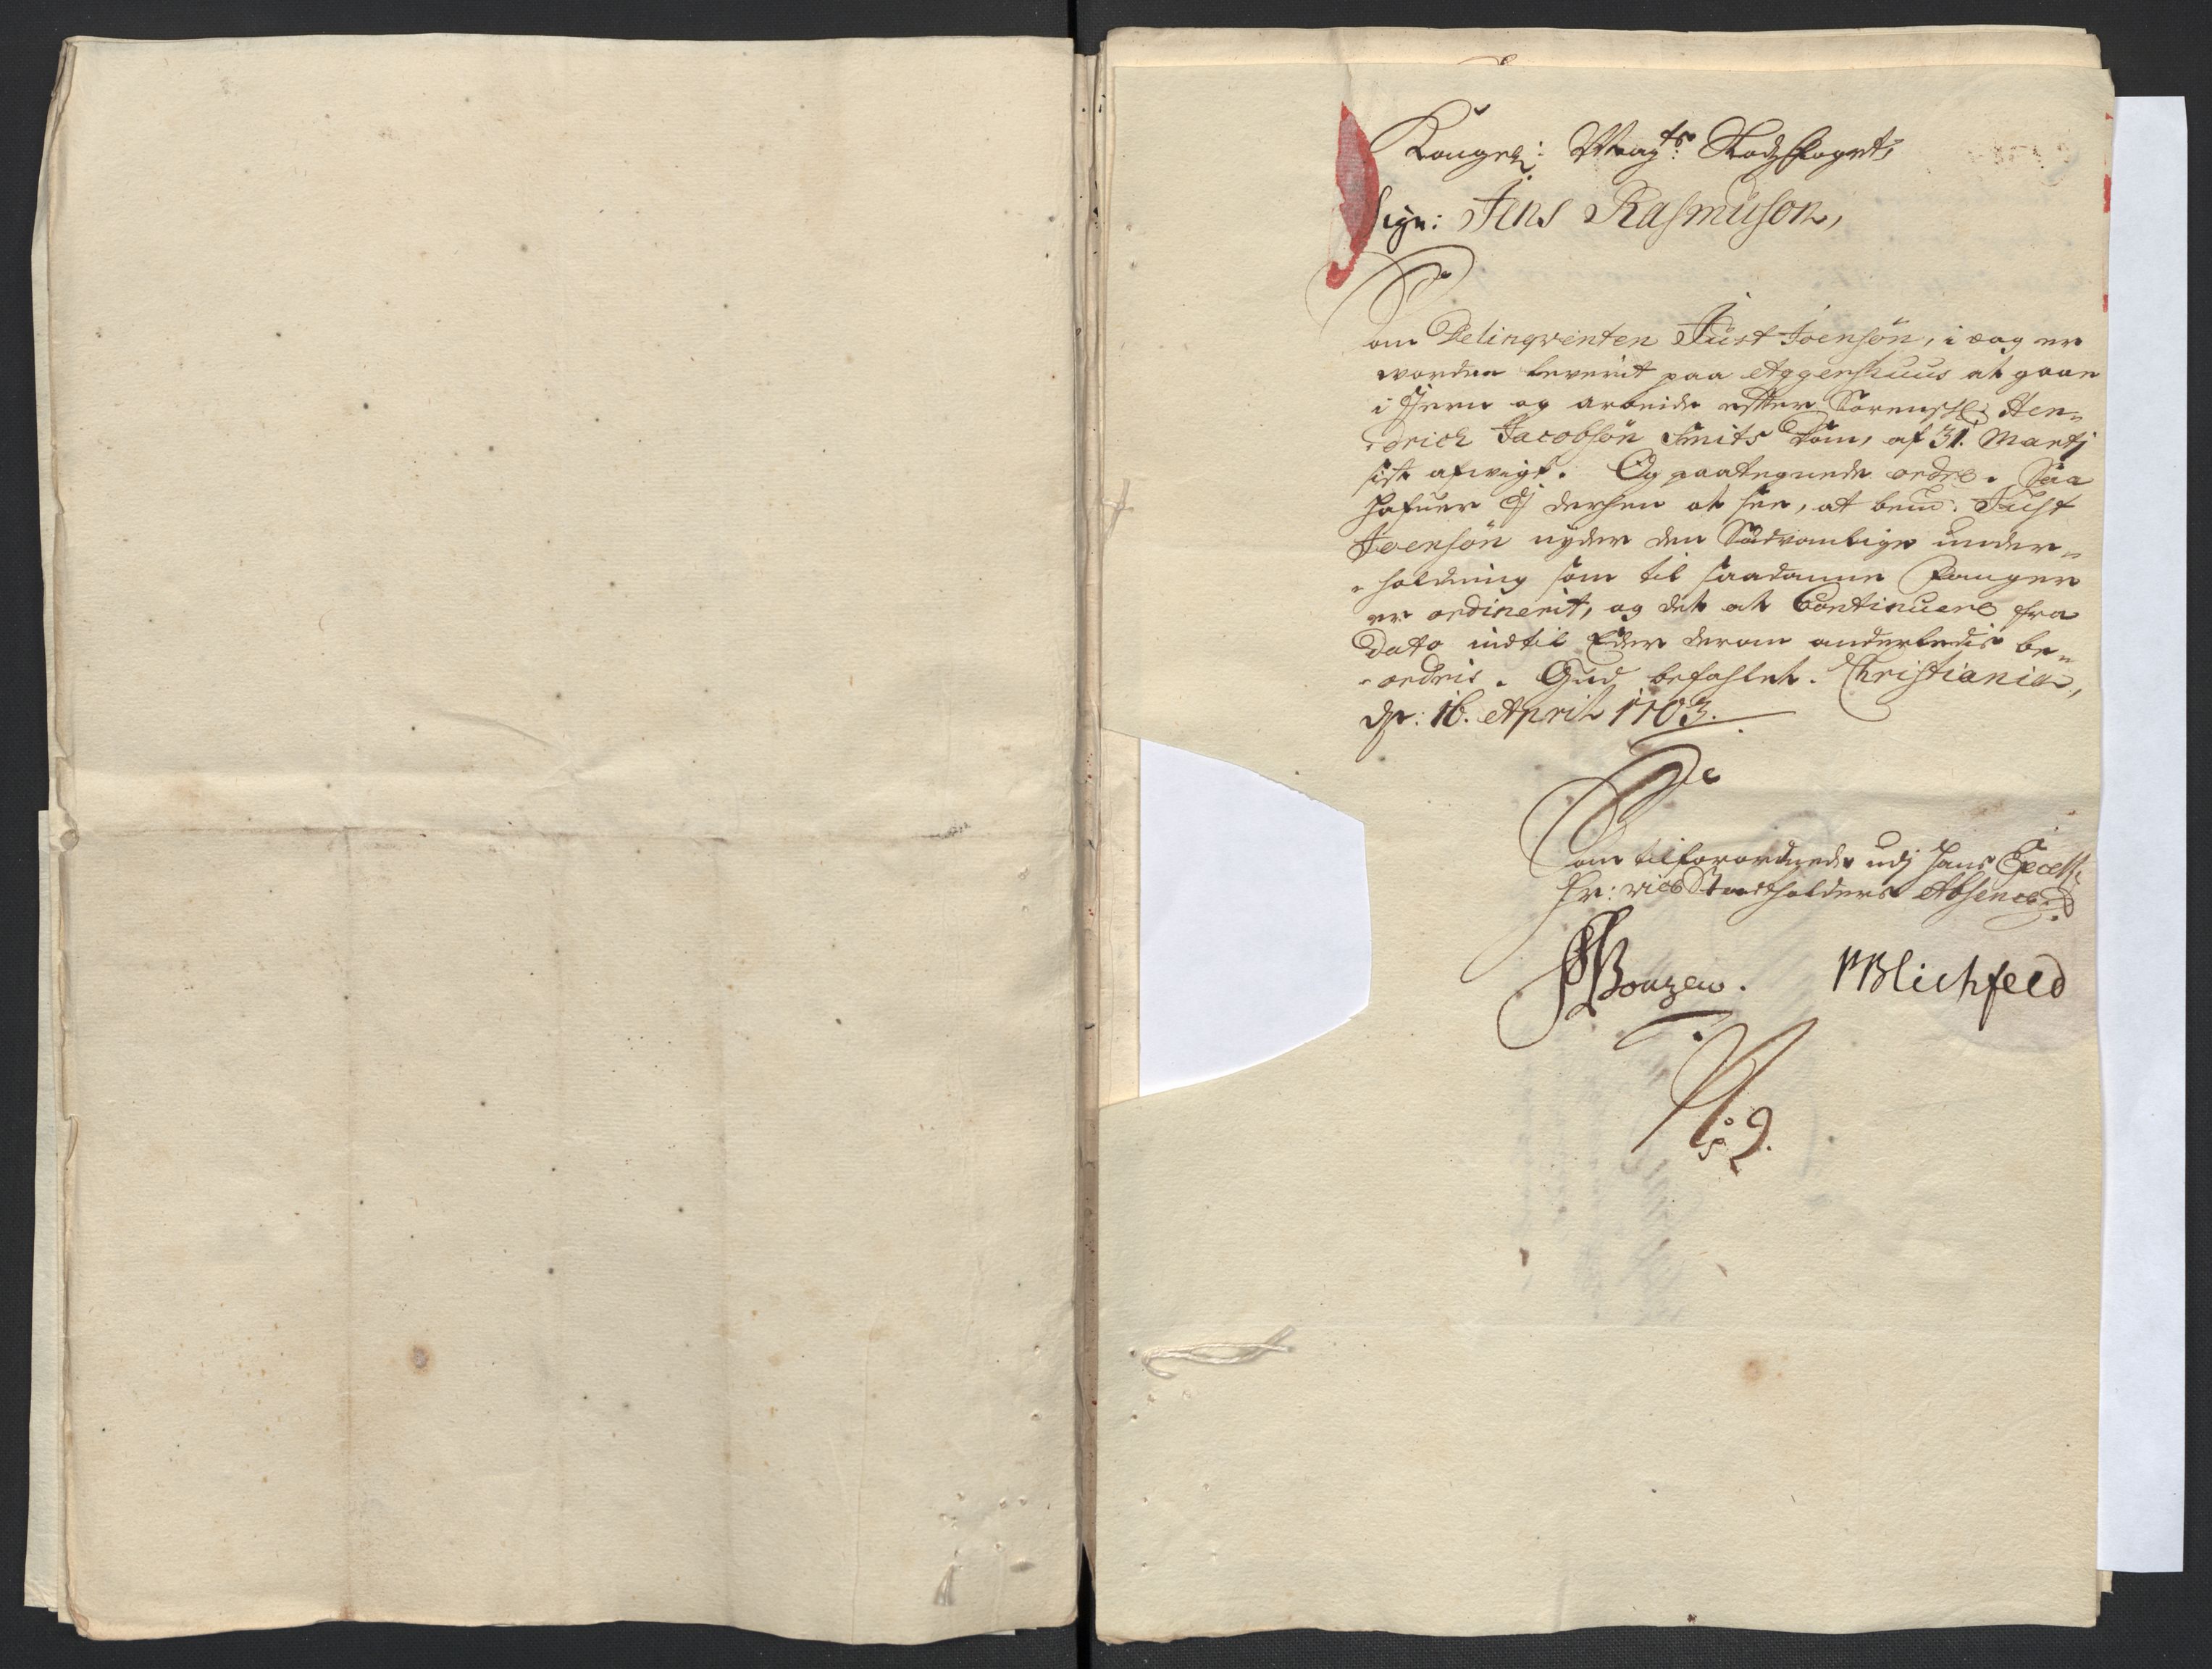 Kongel: Mayts: Slodzfoget,
Sign: Jens Rasmuson,
Som Delinqventen Just Joensön, i dag er
worden leverit paa Aggershuus at gaae
i Jern og arbeide efter Sorenschl: Hen-
-drich Jacobsön Smits dom, af 31. Martj
sist afvigt. Og paategnede ordre. Saa
hafuer I derhen at see, at bem: Just
Joensön nyder den Sædvanlige under-
-holdning som til saadanne Fanger
er ordinerit, og det at Continuere fra
Dato indtil Eder derom anderledis be-
-ordris. Gud befahlet. Christiania,
dn: 16. April 1703.
Som tilforordnede udj hans Excell:
Hr: vice Stadtholders Absence.
Bonzew. Blichfeld
No 2.